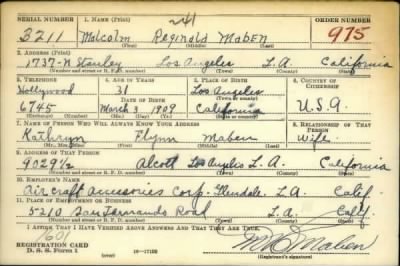 SERIAL NUMBER 1. NAME (Print) 241 ORDER NUMBER
3211 Malcolm Reginald Maben 975
(First) (Middle) (Last)
2. ADDRESS (Print)
1737-N Stanley Los Angeles L.A. California
(Number and street or R. F. D. number) (Town) (County) (State)
3. TELEPHONE 4. AGE IN YEARS 5. PLACE OF BIRTH 6. COUNTRY OF CITIZENSHIP
Hollywood 31 Los Angeles
DATE OF BIRTH (Town or county)
6745 March 3 1909 California U.S.A
(Mo.) (Day) (Yr.) (State or country)
7. NAME OF PERSON WHO WILL ALWAYS KNOW YOUR ADDRESS 8. RELATIONSHIP OF THAT PERSON
Kathryn Flynn Maben Wife
(Mr., Mrs., Miss) (First) (Middle) (Last)
9. ADDRESS OF THAT PERSON
9029½ Alcott Los Angeles L.A. California
(Number and street or R. F. D. number) (Town) (County) (State)
10. EMPLOYER'S NAME
Aircraft Accessories Corp. Glendale. L.A. Calif.
11. PLACE OF EMPLOYMENT OR BUSINESS
San Fernando Road L.A. Calif.
(Number and street or R. F. D. number) (Town) (County) (State)
I AFFIRM THAT I HAVE VERIFIED ABOVE ANSWERS AND THAT THEY ARE TRUE.
REGISTRATION CARD
D. S. S. Form 1 16-17105 Maben
(Registrant's signature)